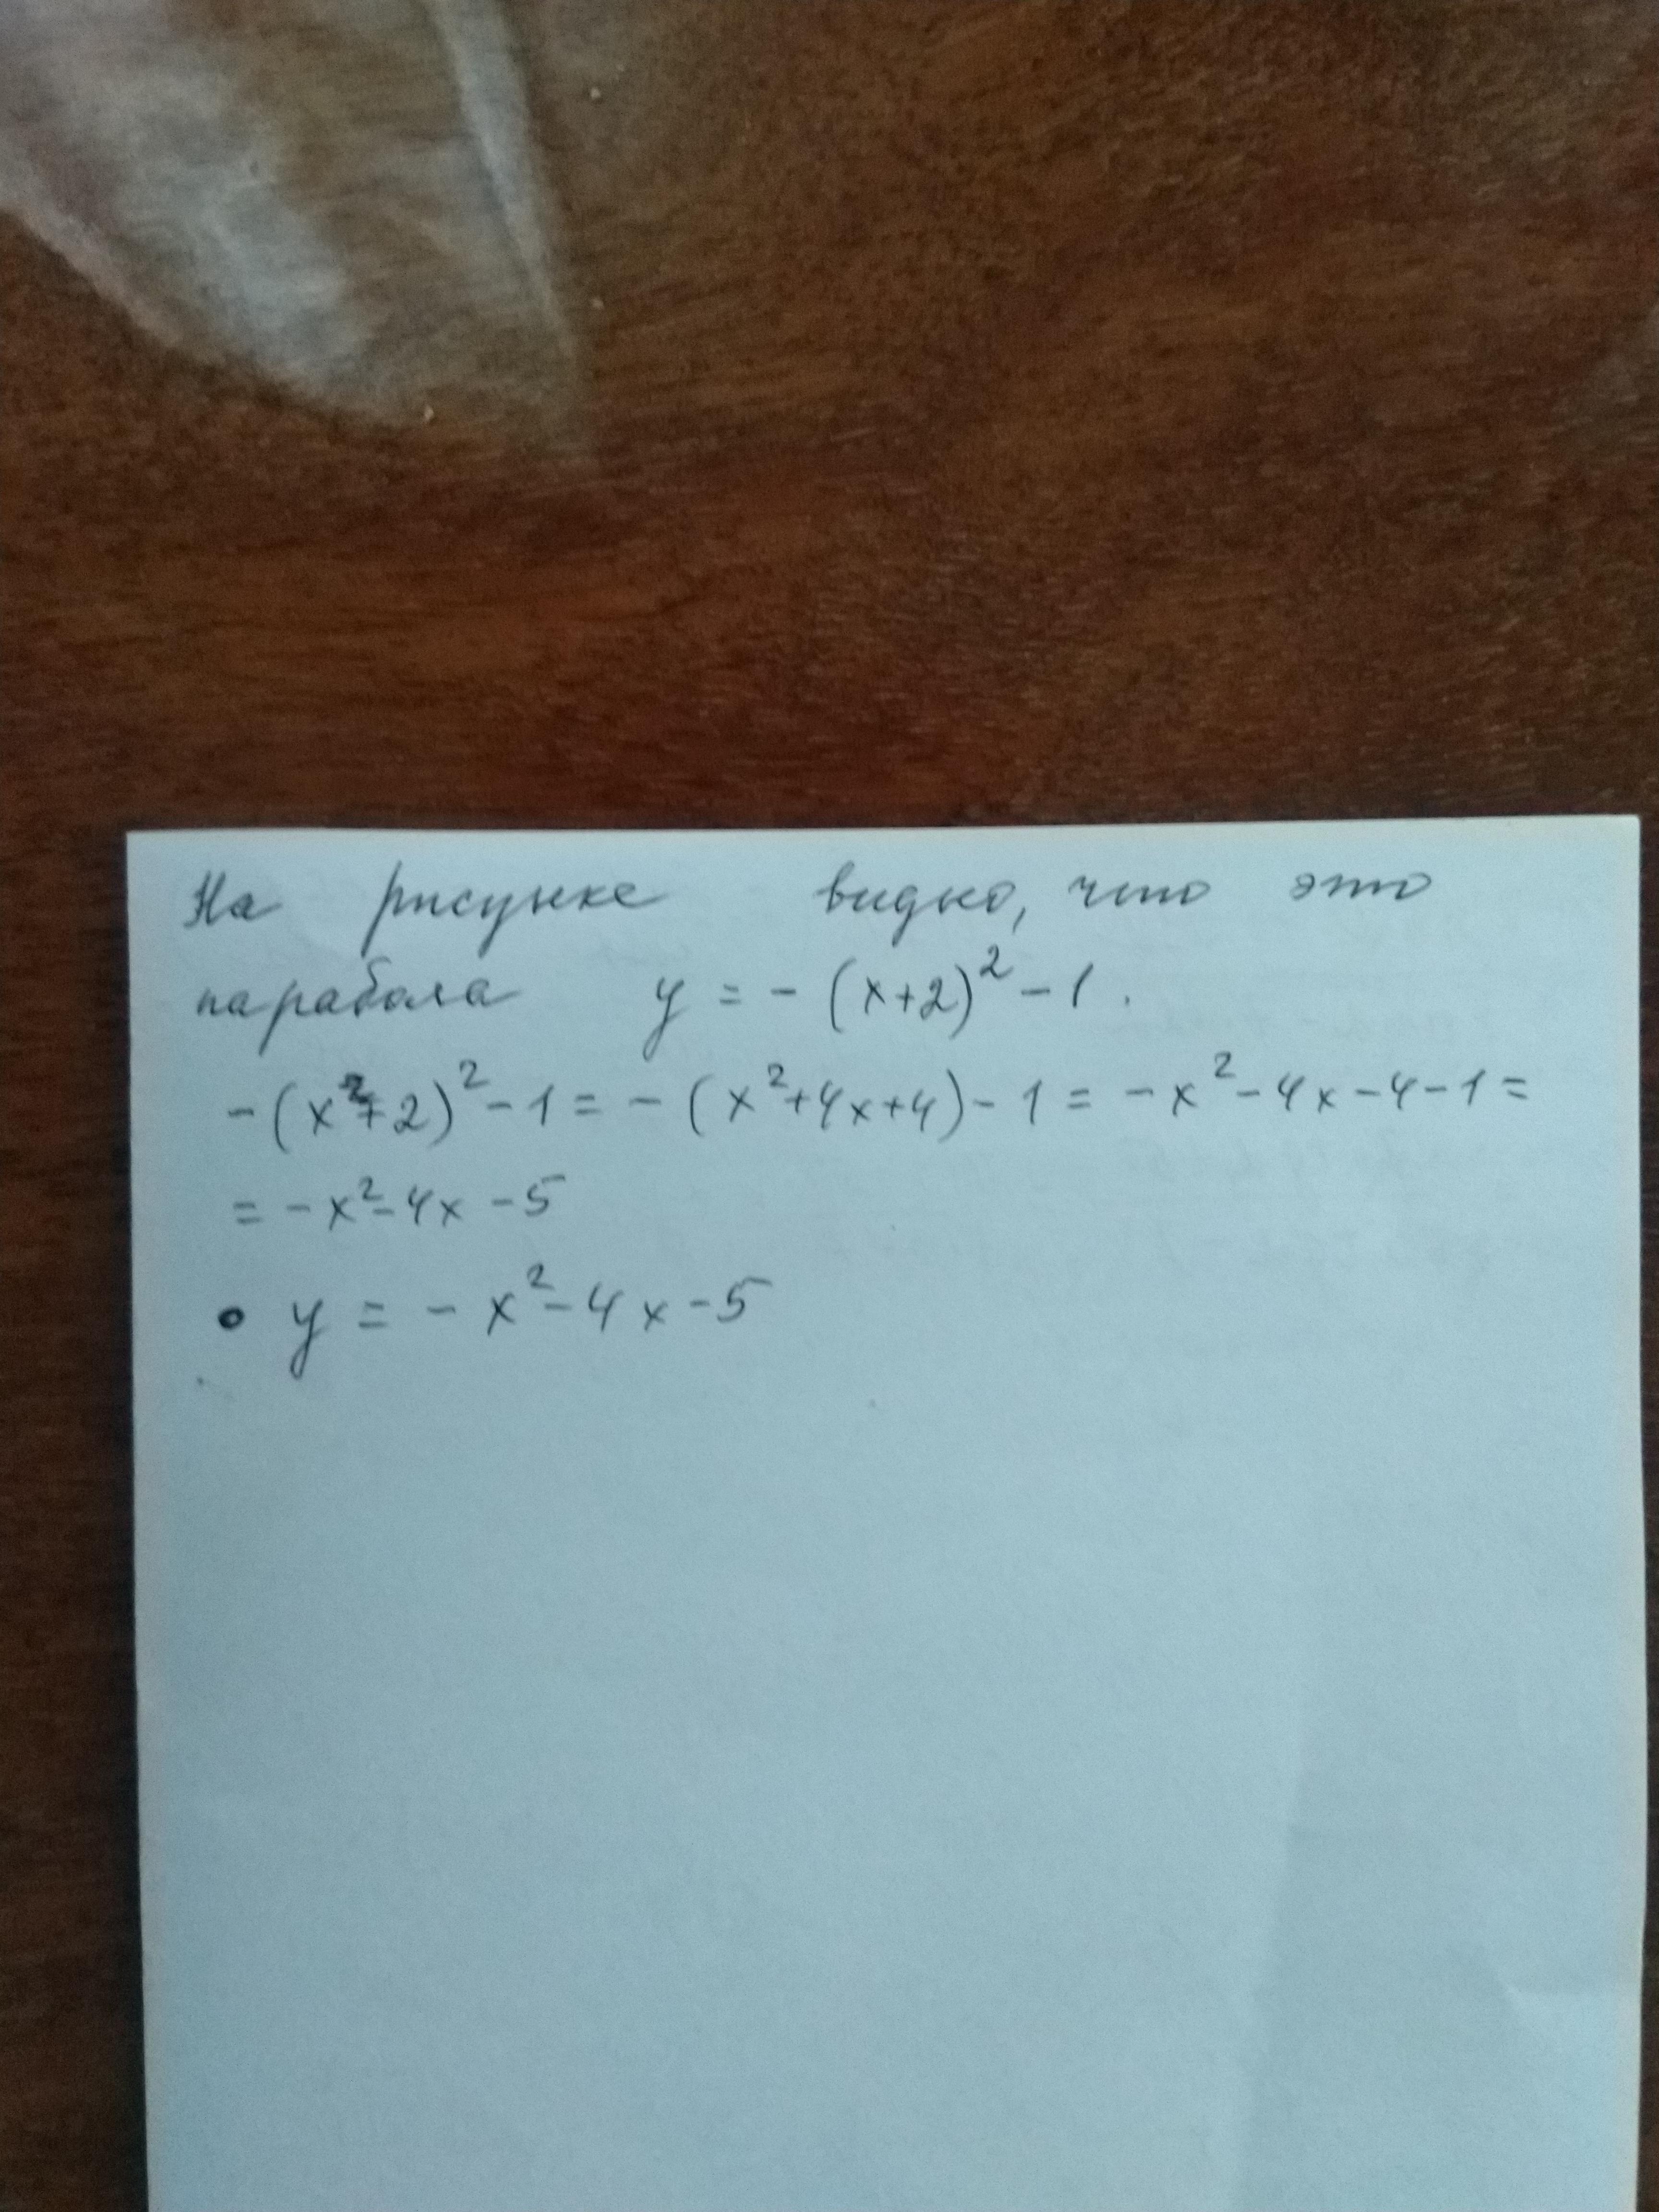 На рисунке видно, что это
парабола y = - (x+2)² - 1.
- (x²+2)² - 1 = - (x²+4x+4) - 1 = - x² - 4x - 4 - 1 =
= - x² - 4x - 5
• y = - x² - 4x - 5